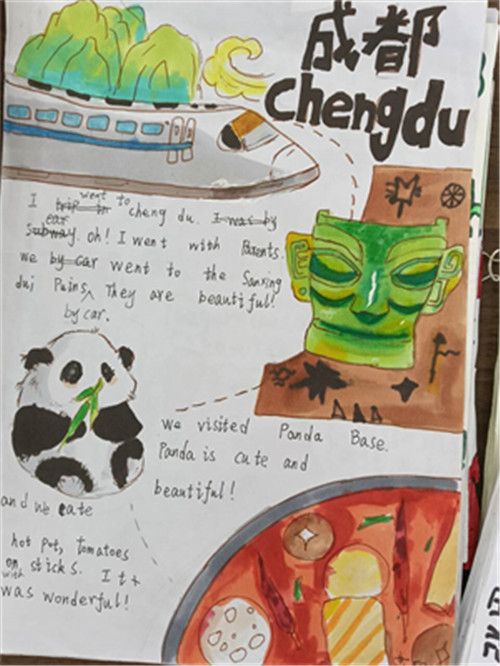 成都
chengdu
went to
I trip in cheng du. I was by
car
Subway. oh! I went with Parents.
we by car went to the Sanxing
dui Ruins, They are beautiful!
by car.
we visited Panda Base.
Panda is cute and
beautiful!
and we eate
hot pot, tomatoes
on sticks. It
with
was wonderful!